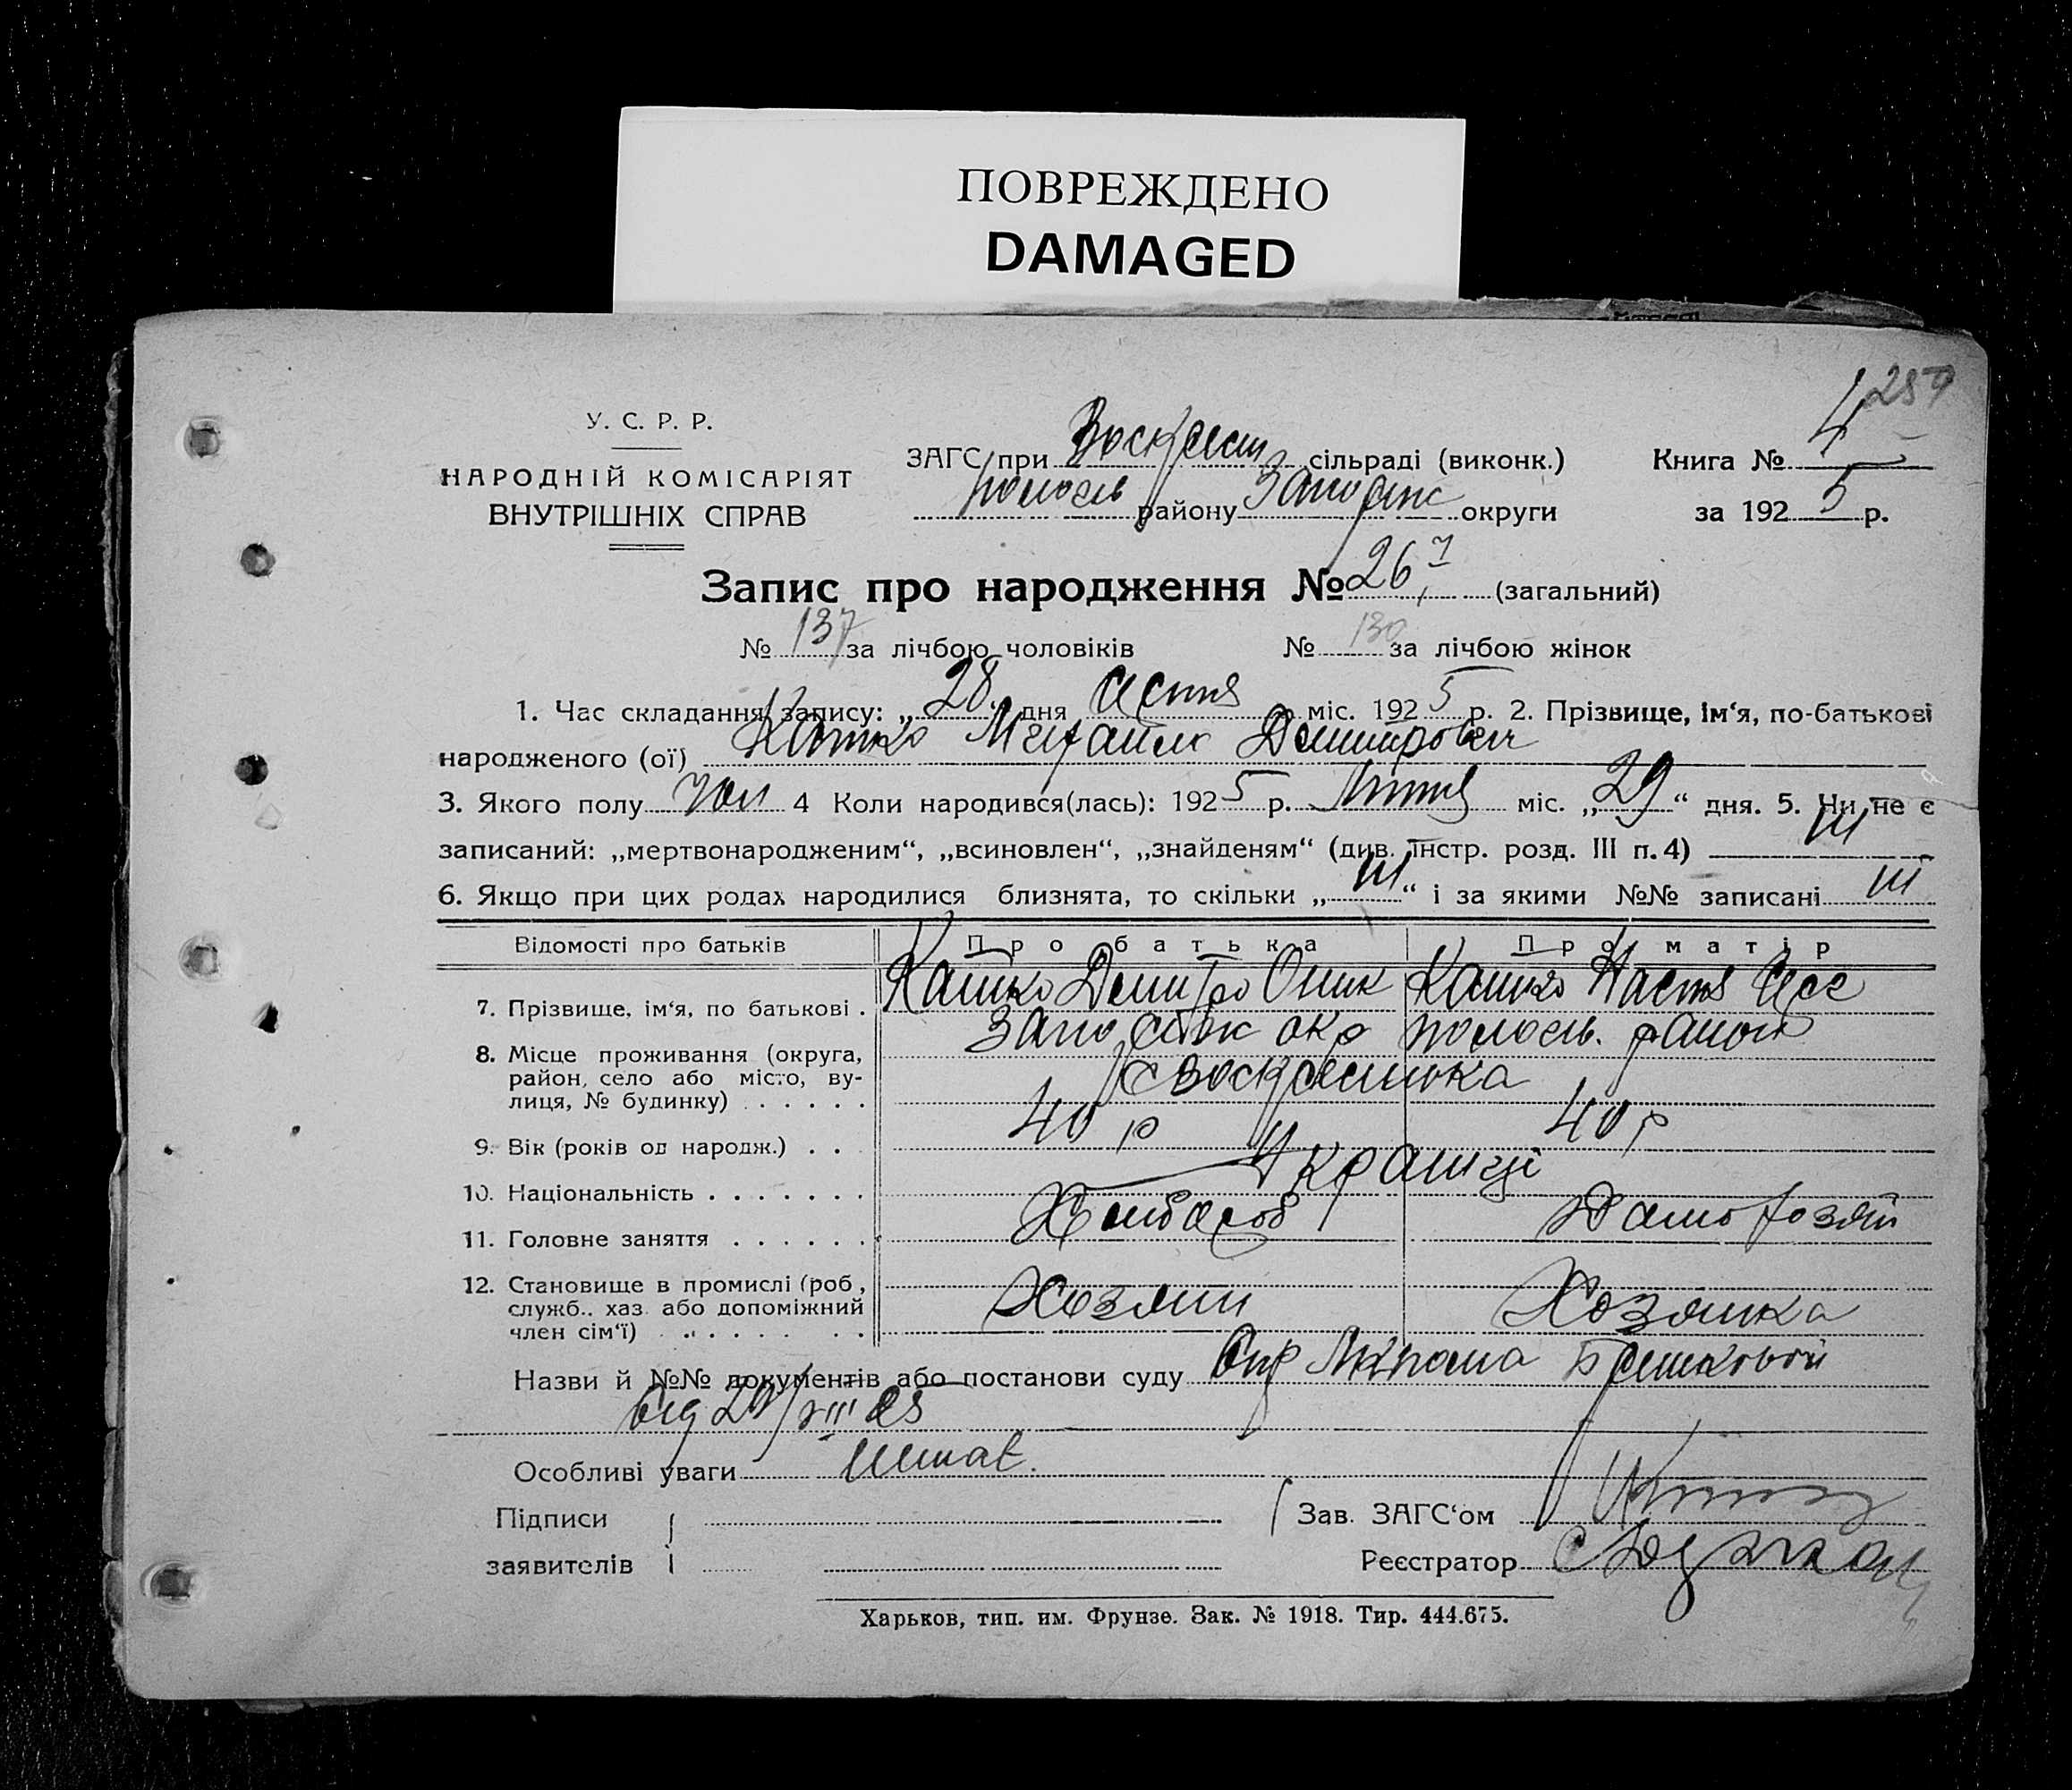 ПОВРЕЖДЕНО
DAMAGED
4 257
У. С. Р. Р.
НАРОДНІЙ КОМІСАРІЯТ
ВНУТРІШНІХ СПРАВ
ЗАГС при Воскресен сільраді (виконк.)
району Запоріж округи
Книга № 4
за 1925 р.
Запис про народження № 267 (загальний)
№ 137 за лічбою чоловіків № 130 за лічбою жінок
1. Час складання запису: „28“ дня міс. 1925 р. 2. Прізвище, ім‘я, по-батькові
народженого (ої) Михайло Дмитрович
3. Якого полу чол 4 Коли народився(лась): 1925 р. міс. „29“ дня. 5. Чи не є
записаний: „мертвонародженим“, „всиновлен“, „знайденям“ (див. Інстр. розд. III п. 4)
6. Якщо при цих родах народилися близнята, то скільки „ “ і за якими №№ записані
Відомості про батьків Про батька Про матір
7. Прізвище, ім‘я, по батькові . Кашко Дмитро Оник Кашко Настя
8. Місце проживання (округа, Запоріж окр пологів. район
район, село або місто, ву- с Воскресенка
лиця, № будинку) . . . . . .
9. Вік (років од народж.) . . . 40 р 40 р
10. Національність . . . . . . . Українці
11. Головне заняття . . . . . . Хлібороб Дамохозяй
12. Становище в промислі (роб., Хозяин Хозяика
служб.. хаз. або допоміжний
член сім‘ї) . . . . . . .
Назви й №№ документів або постанови суду
від VIII 25
Особливі уваги Немає.
Підписи
заявителів
Зав. ЗАГС‘ом
Реєстратор
Харьков, тип. им. Фрунзе. Зак. № 1918. Тир. 444.675.